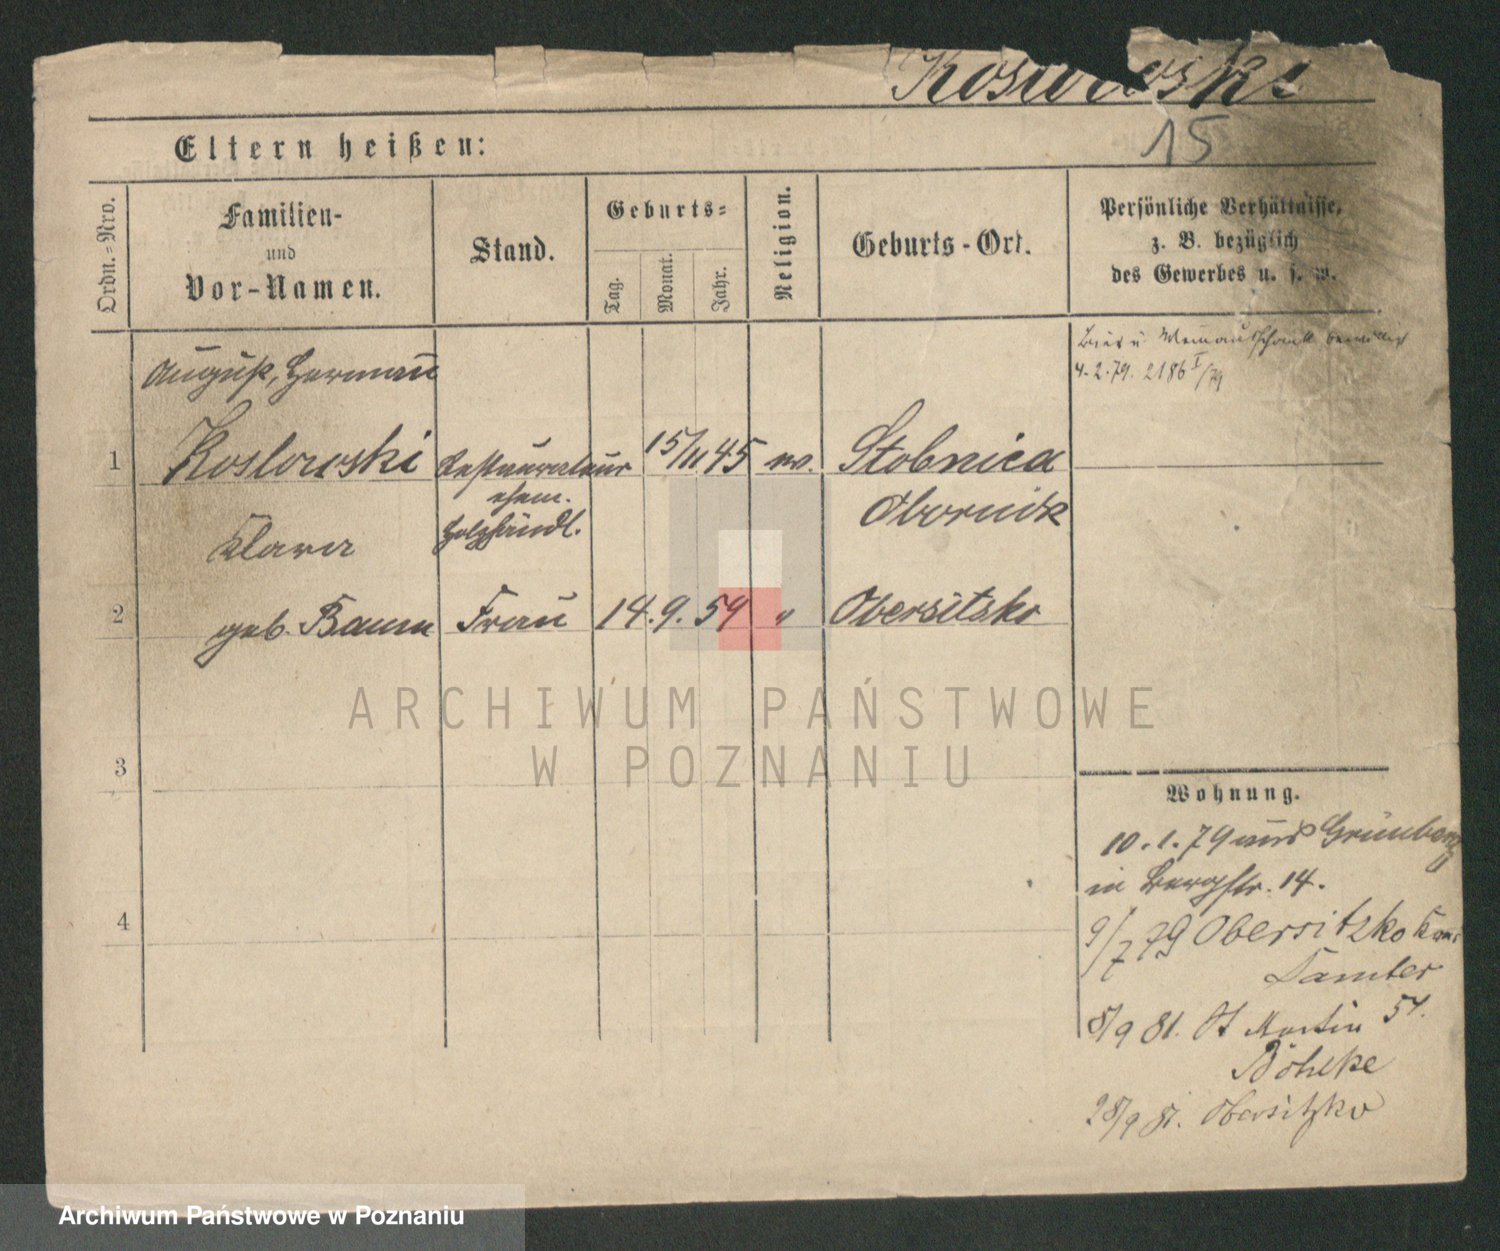 Koslowski
15
Eltern heißen:
Ordn.-Nro.
Familien-
und
Vor-Namen.
Stand.
Geburts-
Tag.
Monat.
Jahr.
Religion.
Geburts-Ort.
Persönliche Verhältnisse,
z. B. bezüglich
des Gewerbes u. s. w.
Bier u Weinausschank bewilligt
4.2.79. 2186 I/79
August, Herman
1 Koslowski Restaurateur 15/11 45 ev. Stobnica
ehem.
Holzhändl.
Obornik
Klara
2 geb. Baum Frau 14. 9. 59 " Obersitzko
3
4
Wohnung.
10.1.79 aus Grünberg
in Bergstr. 14.
9/7 79 Obersitzko
Samter
8/9 81. St Martin 57.
Böhlke
28/9 81. Obersitzko
ARCHIWUM PAŃSTWOWE
W POZNANIU
Archiwum Państwowe w Poznaniu